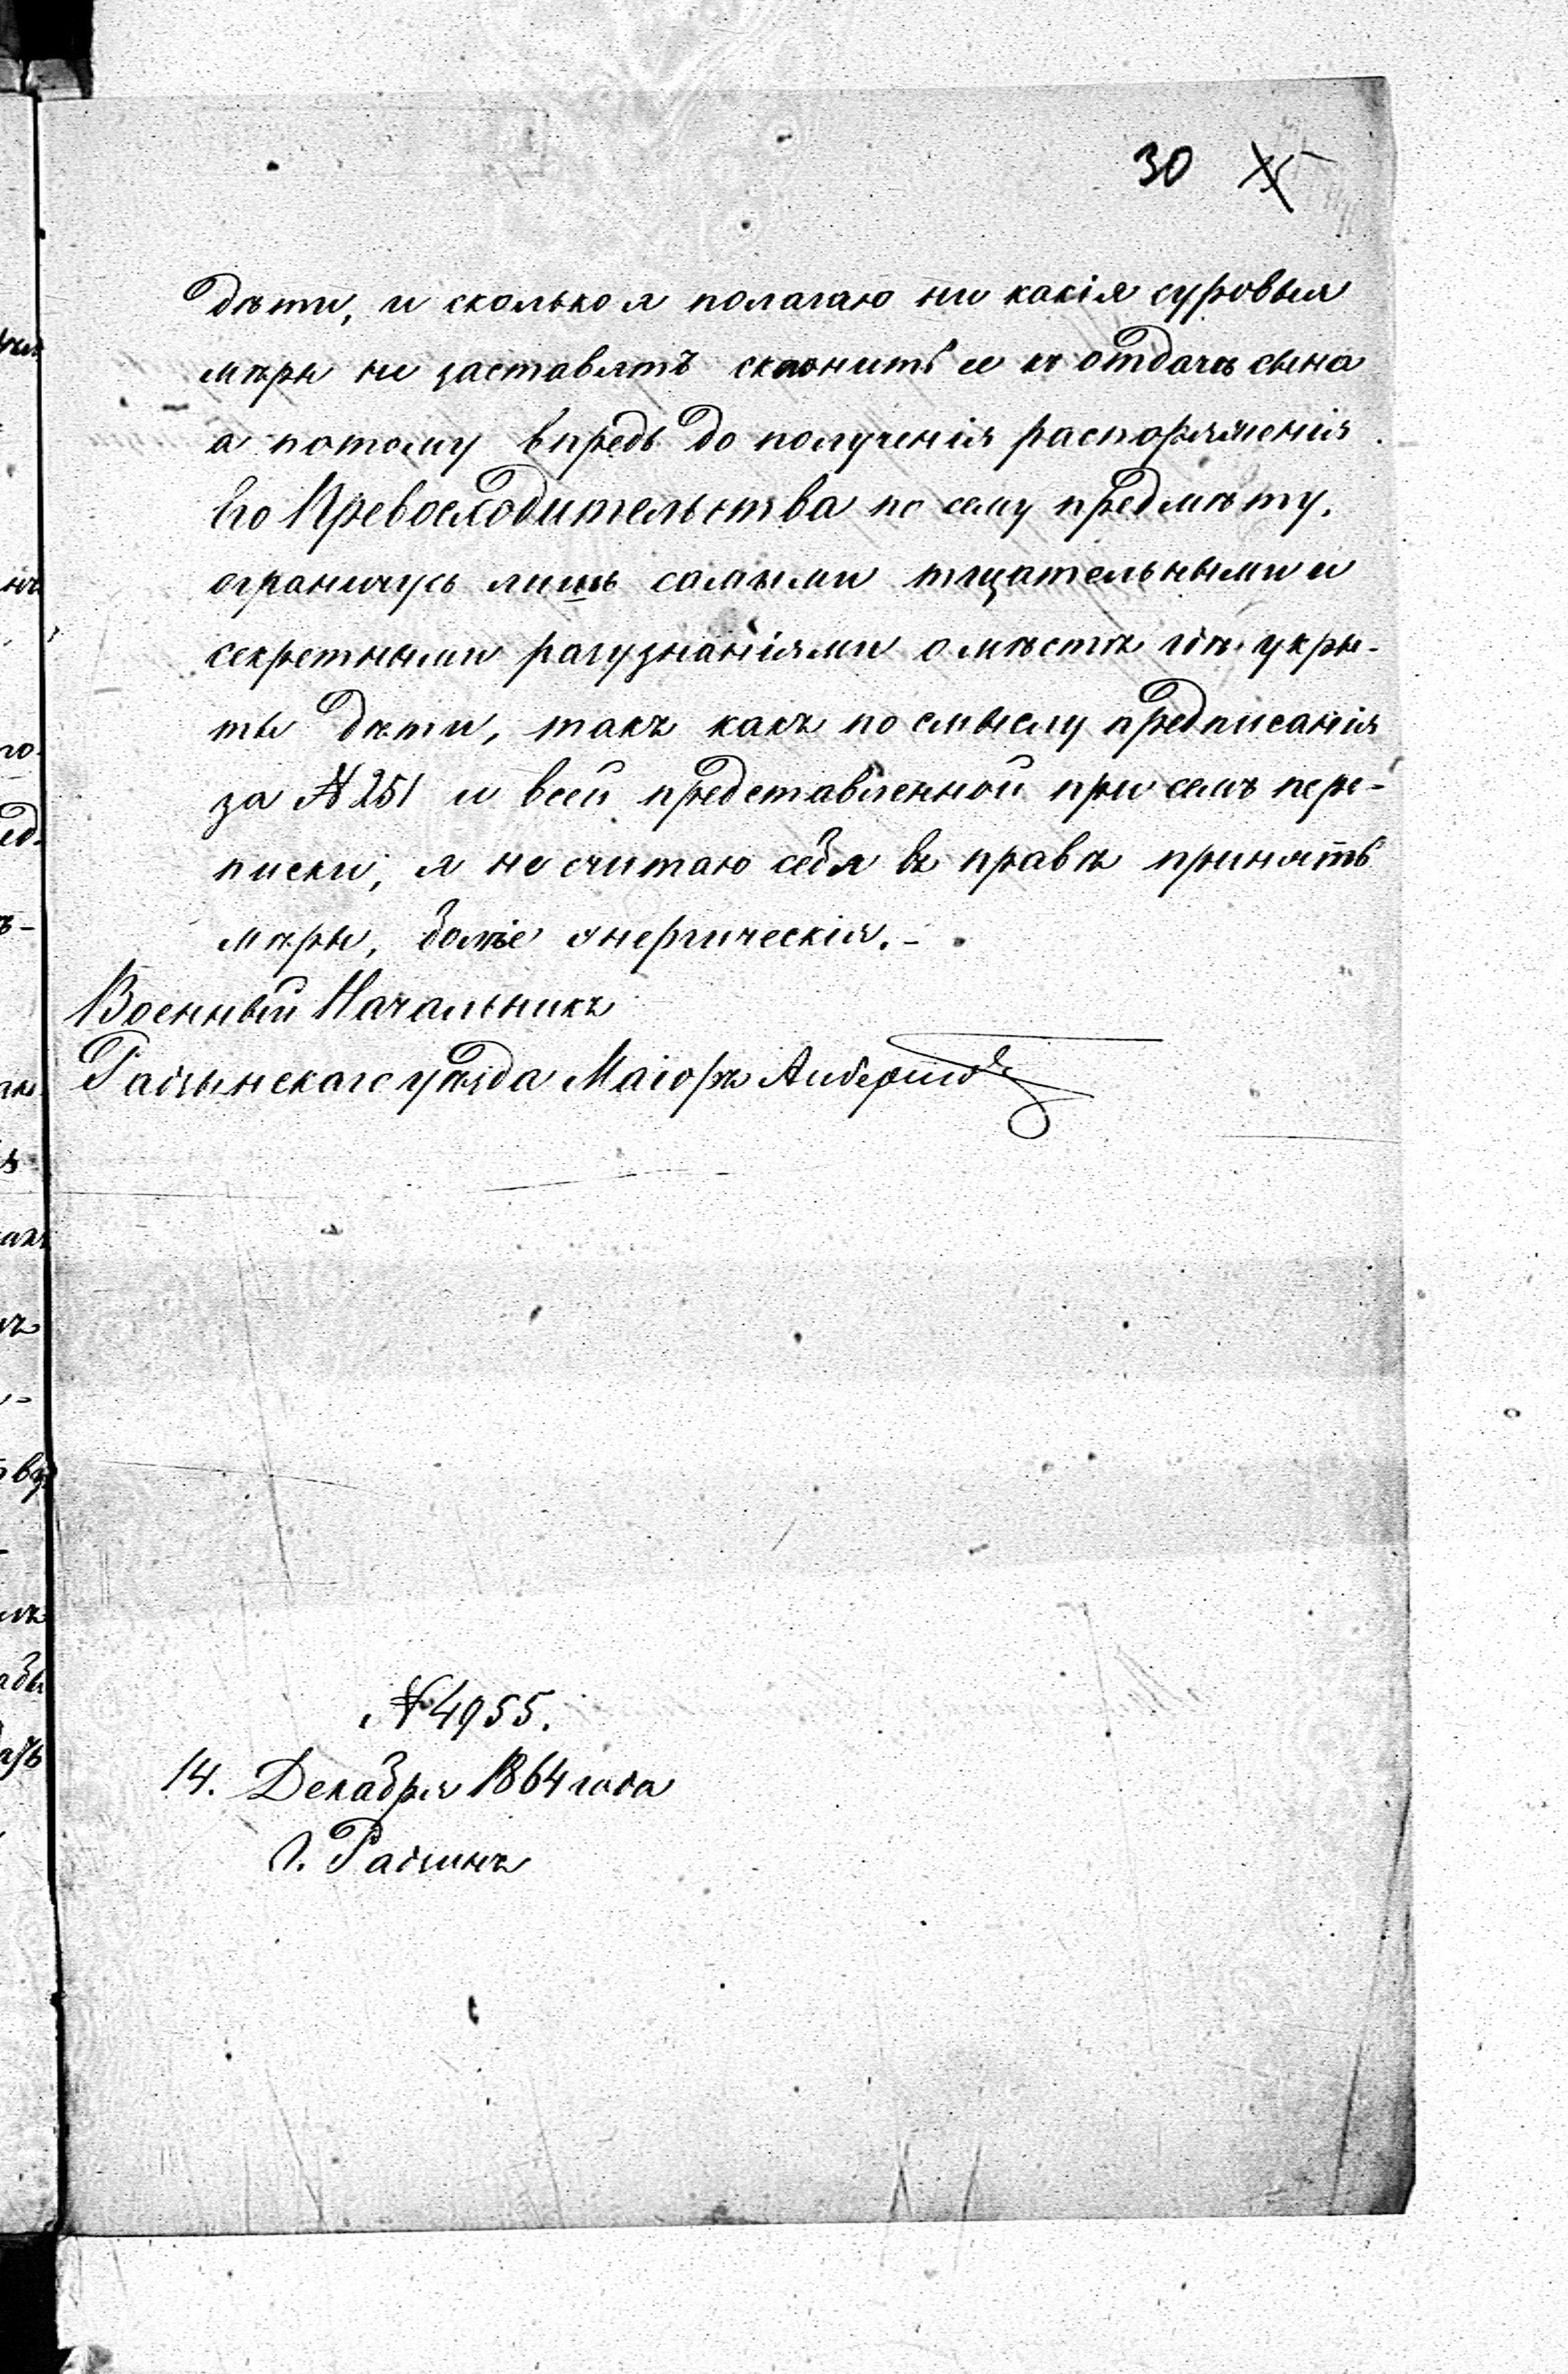 30
дѣти, и сколько я полагаю ни какія суровыя
мѣры не заставятъ склонить ее къ отдачѣ сына
а потому впредь до полученія распоряженія
Его Превосходительства по сему предмѣту,
ограничусь лишь самыми тщательными и
секретными разузнаніями о мѣстѣ гдѣ укры-
ты дѣти, такъ какъ по смыслу предписанія
за № 251 и всей представленной при семъ пере-
писки, я не считаю себя въ правѣ принять
мѣры, болѣе энергическія.-
Военный Начальникъ
Уѣзда Маіоръ
№ 4955.
14. Декабря 1864 года
г.